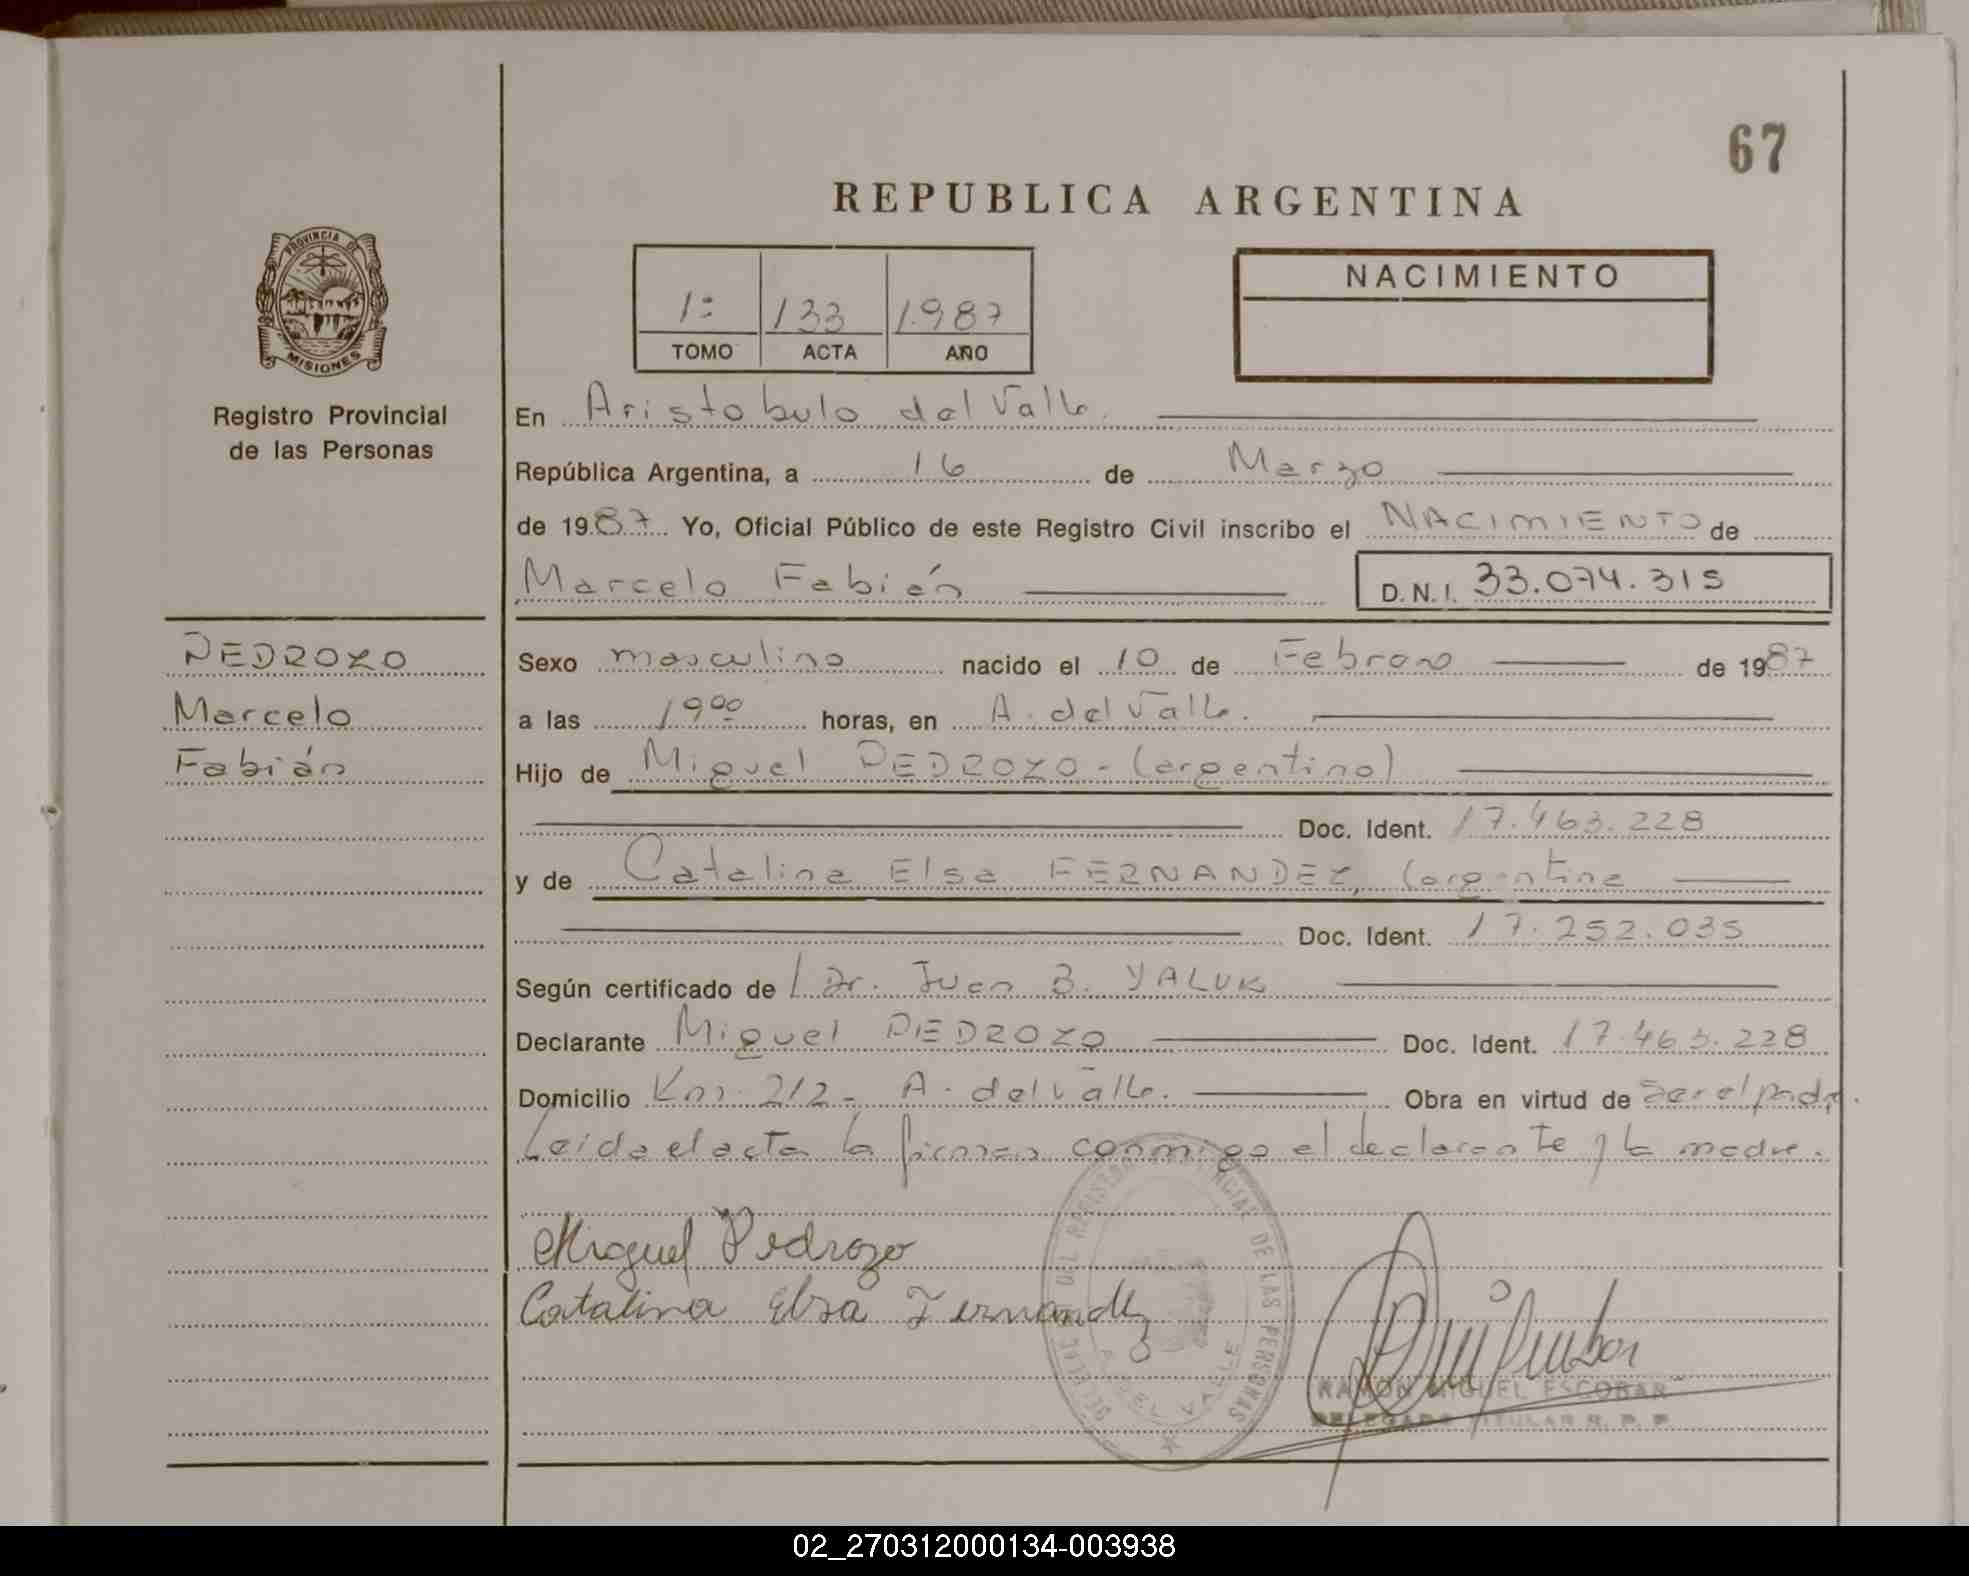 67
REPUBLICA ARGENTINA
PROVINCIA DE
MISIONES
Registro Provincial
de las Personas
1º 133 1.987
TOMO ACTA AÑO
NACIMIENTO
En Aristobulo del Valle.
República Argentina, a 16 de Marzo
de 1987 Yo, Oficial Público de este Registro Civil inscribo el NACIMIENTO de
Marcelo Fabián
D.N.I. 33.074.315
PEDROZO
Marcelo
Fabián
Sexo masculino nacido el 10 de Febrero de 1987
a las 19⁰⁰ horas, en A. del Valle.
Hijo de Miguel PEDROZO - (argentino)
Doc. Ident. 17.463.228
y de Catalina Elsa FERNANDEZ, (argentina
Doc. Ident. 17.252.035
Según certificado de Dr. Juan B. YALUK
Declarante Miguel PEDROZO Doc. Ident. 17.463.228
Domicilio Km. 212 - A. del Valle. Obra en virtud de ser el padre.
Leida el acta la firman conmigo el declarante y la madre.
Miguel Pedrozo
Catalina Elsa Fernandez
DEL REGISTRO PROVINCIAL DE LAS PERSONAS
A. DEL VALLE
RAMON MIGUEL ESCOBAR
DELEGADO TITULAR R. P. P.
02_270312000134-003938